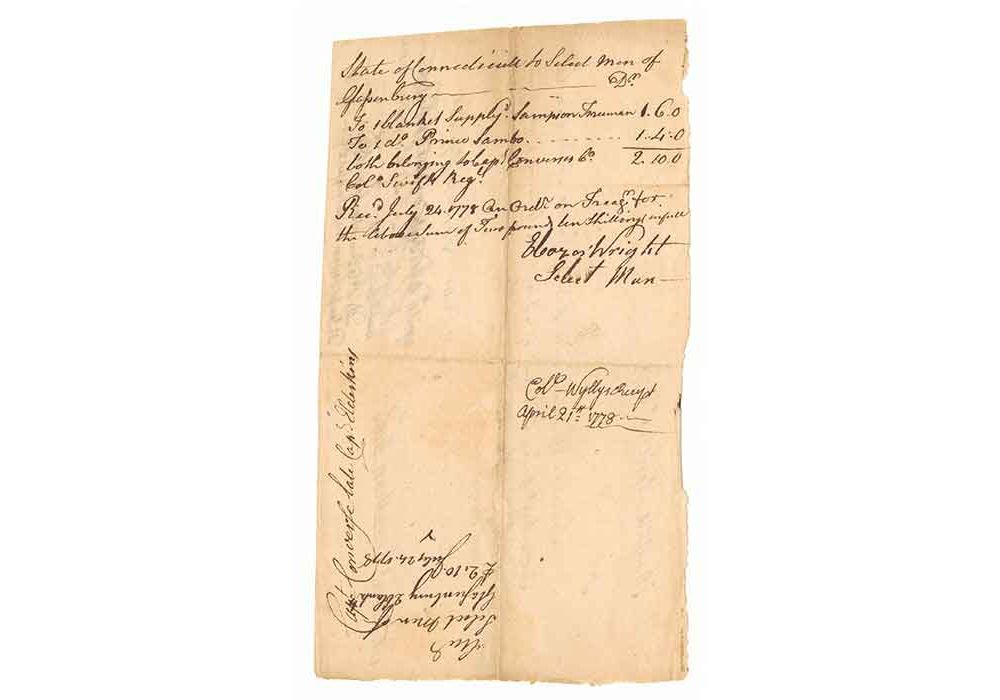 State of Connecticutt to Select Men of
Glassenbury Dr.
To 1 blanket Supplyd. Sampson Freeman 1.6.0
To 1 do. Prince Sambo 1.4.0
both belonging to Capt. Converses Co. 2.10.0
Colo. Swifts Regt.
Recd. July 24. 1778 an Ordr. on Treasr. for
the above sum of Two pounds ten Shillings in full
Elazar Wright
Select Man
Colo. Wyllys
April 21st 1778
Capt. Converse late Capt. Elderkins
Select Men of
Glassenbury 2 Blankts.
£2.10.0
July 24. 1778